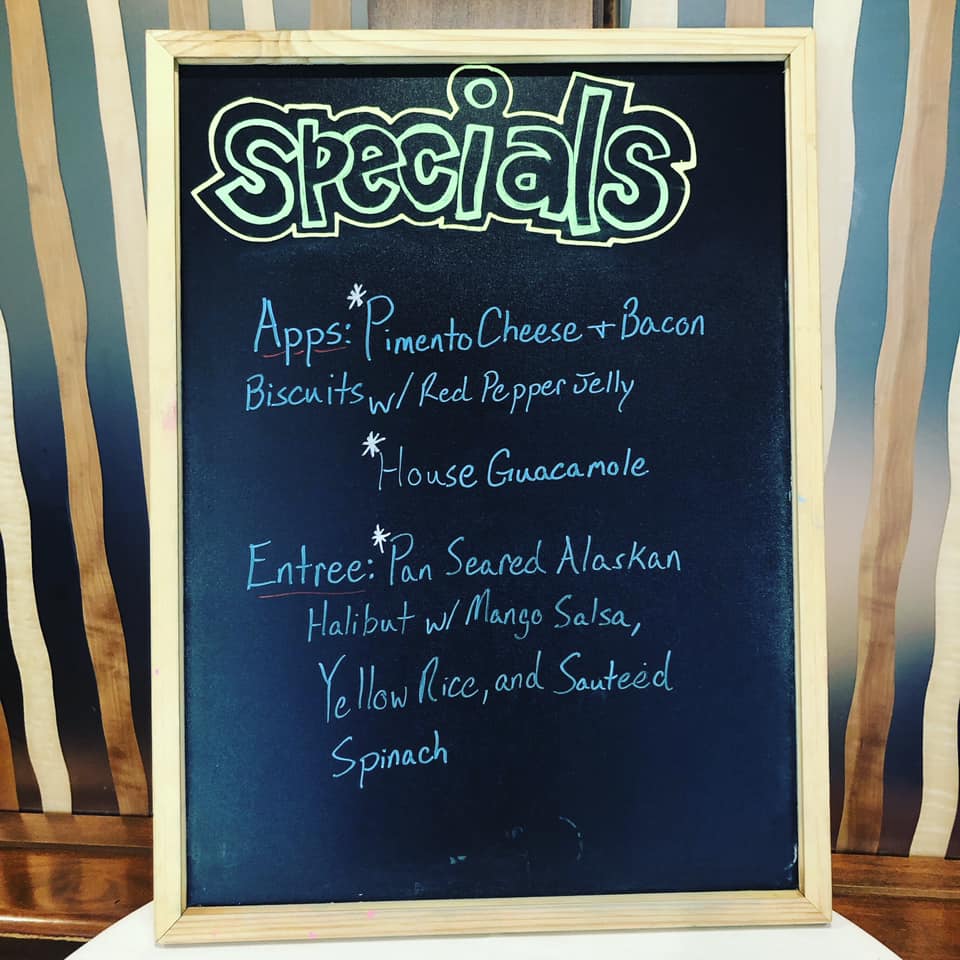 Specials
Apps: *Pimento Cheese + Bacon
Biscuits w/ Red Pepper Jelly
*House Guacamole
Entree: *Pan Seared Alaskan
Halibut w/ Mango Salsa,
Yellow Rice, and Sauteed
Spinach